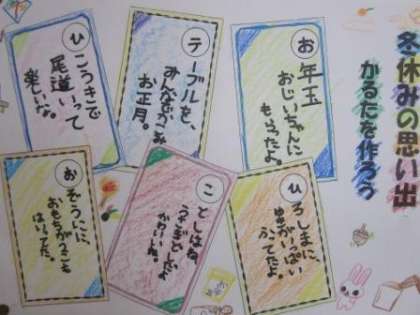 冬休みの思い出
かるたを作ろう
お
年玉
おじいちゃんに
もらったよ。
テ
ーブルを、
みんなでかこみ
お正月。
ひ
こうきで
尾道いって
楽しいな。
ひ
ろしまに、
ゆきがいっぱい
ふってたよ。
こ
としはね、
うさぎどしだよ
かわいいね。
お
ぞうにに、
おもちがうさも
はいってた。